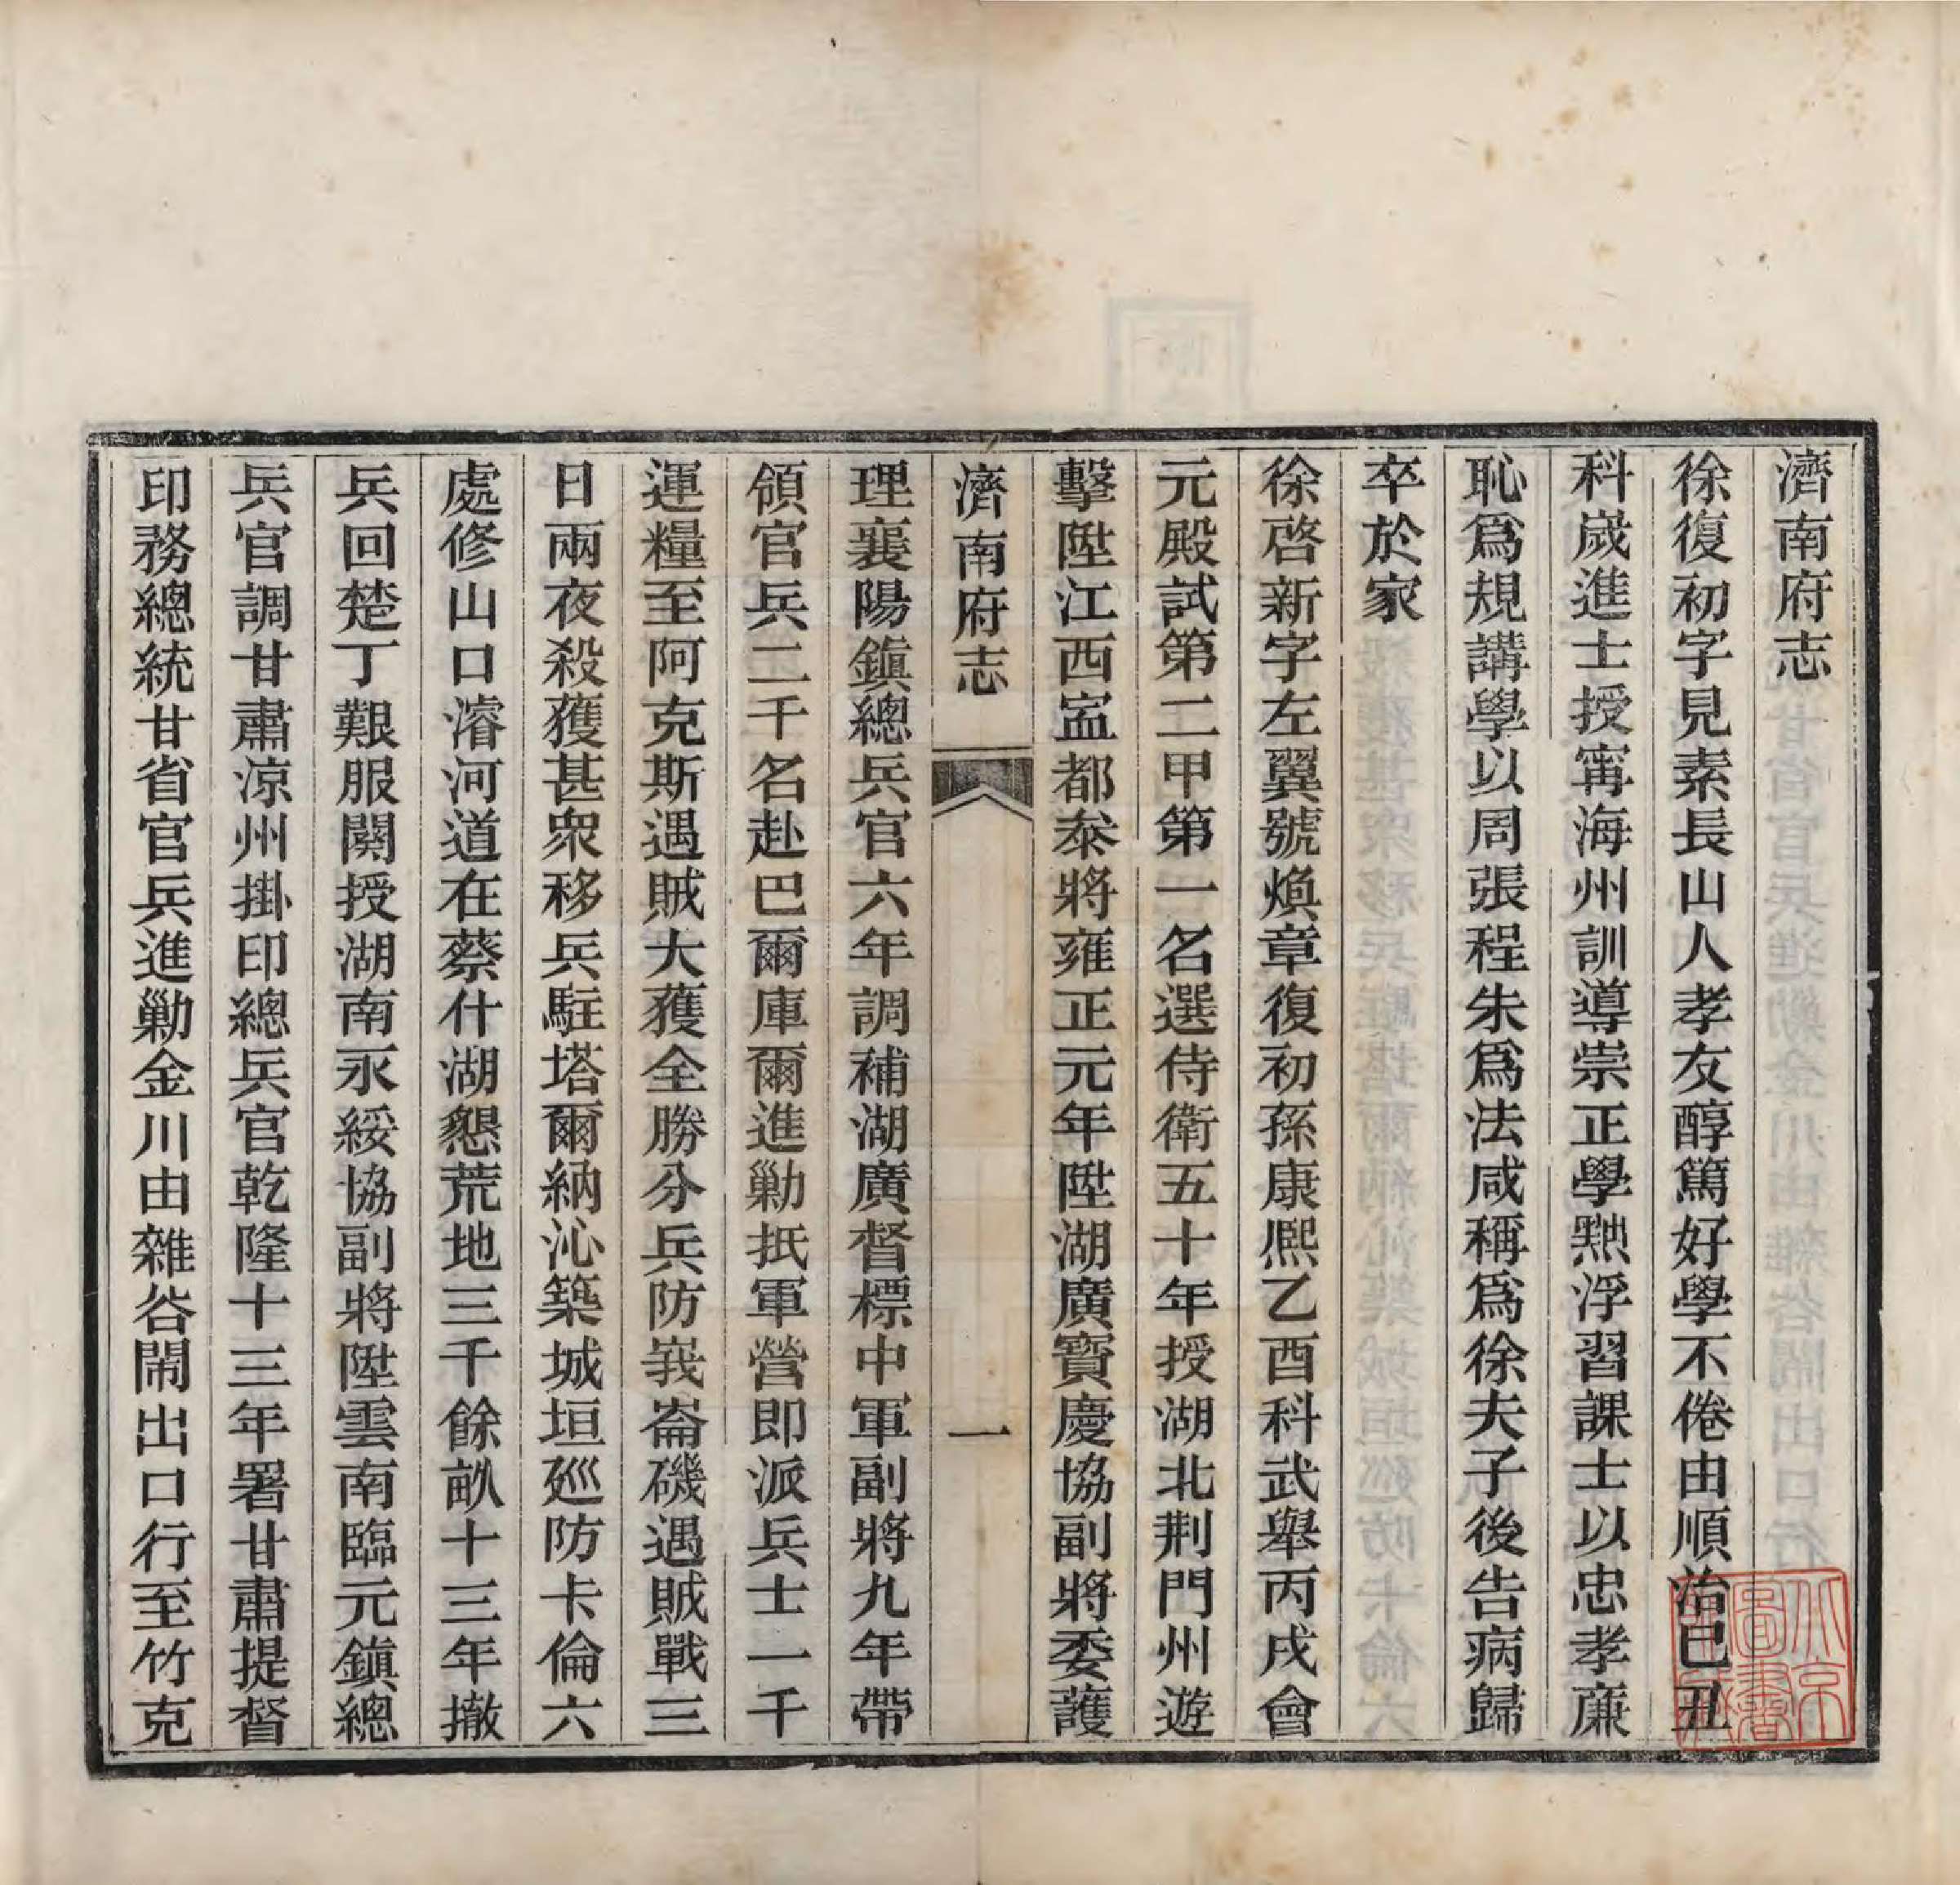 濟南府志
徐復初字見素長山人孝友醇篤好學不倦由順治己丑
科嵗進士授寗海州訓導崇正學黜浮習課士以忠孝亷
恥爲規講學以周張程朱爲法咸稱爲徐夫子後告病歸
卒於家
徐啓新字左翼號煥章復初孫康熈乙酉科武舉丙戌會
元殿試第二甲第一名選侍衛五十年授湖北荆門州遊
擊陞江西寍都叅將雍正元年陞湖廣寶慶協副將委護
濟南府志
一
理襄陽鎭總兵官六年調補湖廣督標中軍副將九年帶
領官兵二千名赴巴爾庫爾進勦抵軍營即派兵士一千
運糧至阿克斯遇賊大獲全勝分兵防莪崙磯遇賊戰三
日兩夜殺獲甚衆移兵駐塔爾納沁築城垣廵防卡倫六
處修山口濬河道在蔡什湖懇荒地三千餘畝十三年撤
兵回楚丁艱服闋授湖南永綏協副將陞雲南臨元鎭總
兵官調甘肅凉州掛印總兵官乾隆十三年署甘肅提督
印務總統甘省官兵進勦金川由雜谷閙出口行至竹克
北京
圖書